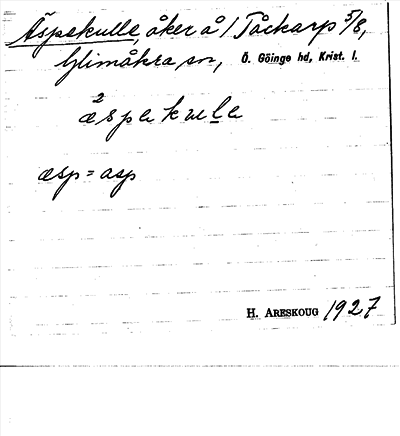 Äspekulle, åker å 1 Tåckarp 5/8,
Glimåkra sn, Ö. Göinge hd, Krist. l.
2
æspekule
æsp = asp
H. ARESKOUG 1927